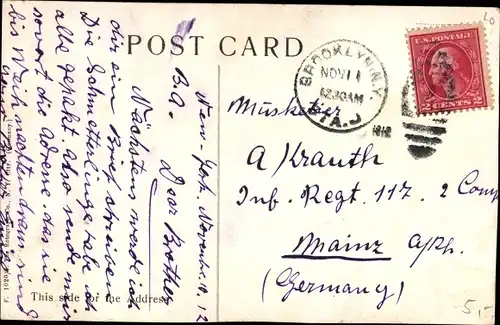 POST CARD
BROOKLYN, N.Y.
NOV 11
12.30 AM
STA. J
1912
U.S. POSTAGE
2 CENTS 2
Musketier
A Krauth
Inf. Regt. 117. 2 Comp
Mainz a/Rh.
(Germany)
New-York, November 10. 12
B.A. Dear Brother
Nächstens werde ich
dir ein Brief schreiben
Die Schmetterlinge habe ich
alle gepakt. Also sende mir
sofort die Adresse das sie
bis Weihnachten dram sind
This side for the Address
5,-